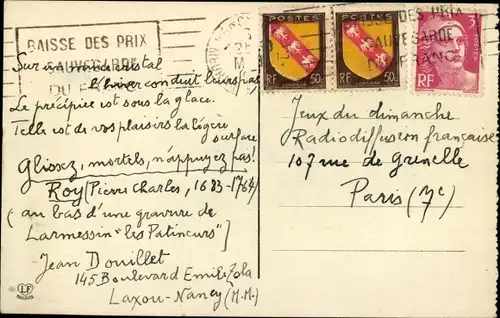 BAISSE DES PRIX
SAUVEGARDE
DU
BAISSE DES PRIX
SAUVEGARDE
DU FRANC
POSTES
RF LORRAINE 50c
POSTES
RF LORRAINE 50c
3F
RF
Sur un mince cristal
l'hiver conduit leurs pas,
Le précipice est sous la glace.
Telle est de vos plaisirs la légère
surface
Glissez, mortels, n'appuyez pas!
Roy (Pierre Charles, 1683-1764)
(au bas d'une gravure de
Larmessin "les Patineurs"]
Jean Douillet
145 Boulevard Emile Zola
Laxou-Nancy (M.M.)
LF
Jeux du dimanche
Radiodiffusion française
107 rue de Grenelle
Paris (7e)